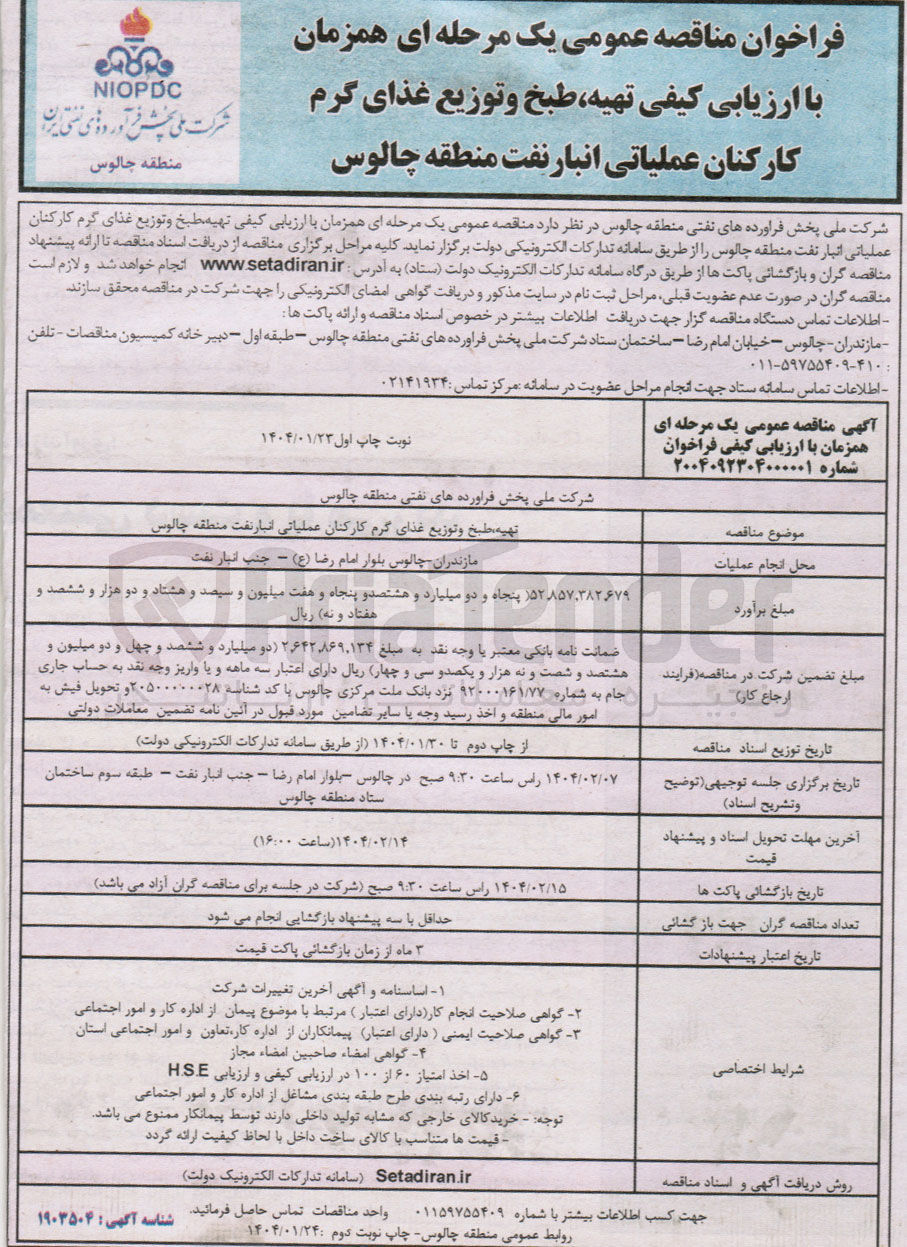 فراخوان مناقصه عمومی یک مرحله ای همزمان
با ارزیابی کیفی تهیه،طبخ وتوزیع غذای گرم
کارکنان عملیاتی انبارنفت منطقه چالوس
NIOPDC
شرکت ملی پخش فرآورده‌های نفتی ایران
منطقه چالوس
شرکت ملی پخش فراورده های نفتی منطقه چالوس در نظر دارد مناقصه عمومی یک مرحله ای همزمان با ارزیابی کیفی تهیه،طبخ وتوزیع غذای گرم کارکنان
عملیاتی انبار نفت منطقه چالوس را از طریق سامانه تدارکات الکترونیکی دولت برگزار نماید. کلیه مراحل برگزاری مناقصه از دریافت اسناد مناقصه تا ارائه پیشنهاد
مناقصه گران و بازگشائی پاکت ها از طریق درگاه سامانه تدارکات الکترونیک دولت (ستاد) به آدرس : www.setadiran.ir انجام خواهد شد و لازم است
مناقصه گران در صورت عدم عضویت قبلی، مراحل ثبت نام در سایت مذکور و دریافت گواهی امضای الکترونیکی را جهت شرکت در مناقصه محقق سازند.
-اطلاعات تماس دستگاه مناقصه گزار جهت دریافت اطلاعات بیشتر در خصوص اسناد مناقصه و ارائه پاکت ها :
-مازندران-چالوس –خیابان امام رضا –ساختمان ستاد شرکت ملی پخش فراورده های نفتی منطقه چالوس –طبقه اول –دبیر خانه کمیسیون مناقصات - تلفن
: ۴۱۰-۰۱۱-۵۹۷۵۵۴۰۹
-اطلاعات تماس سامانه ستاد جهت انجام مراحل عضویت در سامانه :مرکز تماس :۰۲۱۴۱۹۳۴
آگهی مناقصه عمومی یک مرحله ای
همزمان با ارزیابی کیفی فراخوان
شماره ۲۰۰۴۰۹۲۳۰۴۰۰۰۰۰۱
نوبت چاپ اول۱۴۰۴/۰۱/۲۳
شرکت ملی پخش فراورده های نفتی منطقه چالوس
موضوع مناقصه
تهیه،طبخ وتوزیع غذای گرم کارکنان عملیاتی انبارنفت منطقه چالوس
محل انجام عملیات
مازندران-چالوس بلوار امام رضا (ع) – جنب انبار نفت
مبلغ برآورد
۵۲،۸۵۷،۳۸۲،۶۷۹( پنجاه و دو میلیارد و هشتصدو پنجاه و هفت میلیون و سیصد و هشتاد و دو هزار و ششصد و
هفتاد و نه) ریال
مبلغ تضمین شرکت در مناقصه(فرایند
ارجاع کار)
ضمانت نامه بانکی معتبر یا وجه نقد به مبلغ ۲،۶۴۲،۸۶۹،۱۳۴ (دو میلیارد و ششصد و چهل و دو میلیون و
هشتصد و شصت و نه هزار و یکصدو سی و چهار) ریال دارای اعتبار سه ماهه و یا واریز وجه نقد به حساب جاری
جام به شماره ۹۲۰۰۰۱۶۱/۷۷ نزد بانک ملت مرکزی چالوس با کد شناسه ۲۰۵۰۰۰۰۰۰۰۲۸و تحویل فیش به
امور مالی منطقه و اخذ رسید وجه یا سایر تضامین مورد قبول در آئین نامه تضمین معاملات دولتی
تاریخ توزیع اسناد مناقصه
از چاپ دوم تا ۱۴۰۴/۰۱/۳۰ (از طریق سامانه تدارکات الکترونیکی دولت)
تاریخ برگزاری جلسه توجیهی(توضیح
وتشریح اسناد)
۱۴۰۴/۰۲/۰۷ راس ساعت ۹:۳۰ صبح در چالوس –بلوار امام رضا – جنب انبار نفت – طبقه سوم ساختمان
ستاد منطقه چالوس
آخرین مهلت تحویل اسناد و پیشنهاد
قیمت
۱۴۰۴/۰۲/۱۴(ساعت ۱۶:۰۰)
تاریخ بازگشائی پاکت ها
۱۴۰۴/۰۲/۱۵ راس ساعت ۹:۳۰ صبح (شرکت در جلسه برای مناقصه گران آزاد می باشد)
تعداد مناقصه گران جهت باز گشائی
حداقل با سه پیشنهاد بازگشایی انجام می شود
تاریخ اعتبار پیشنهادات
۳ ماه از زمان بازگشائی پاکت قیمت
شرایط اختصاصی
۱- اساسنامه و آگهی آخرین تغییرات شرکت
۲- گواهی صلاحیت انجام کار(دارای اعتبار ) مرتبط با موضوع پیمان از اداره کار و امور اجتماعی
۳- گواهی صلاحیت ایمنی ( دارای اعتبار) پیمانکاران از اداره کار،تعاون و امور اجتماعی استان
۴- گواهی امضاء صاحبین امضاء مجاز
۵- اخذ امتیاز ۶۰ از ۱۰۰ در ارزیابی کیفی و ارزیابی H.S.E
۶- دارای رتبه بندی طرح طبقه بندی مشاغل از اداره کار و امور اجتماعی
توجه: - خریدکالای خارجی که مشابه تولید داخلی دارند توسط پیمانکار ممنوع می باشد.
- قیمت ها متناسب با کالای ساخت داخل با لحاظ کیفیت ارائه گردد
روش دریافت آگهی و اسناد مناقصه
Setadiran.ir (سامانه تدارکات الکترونیک دولت)
جهت کسب اطلاعات بیشتر با شماره ۰۱۱۵۹۷۵۵۴۰۹ واحد مناقصات تماس حاصل فرمائید.
روابط عمومی منطقه چالوس- چاپ نوبت دوم :۱۴۰۴/۰۱/۲۴
شناسه آگهی : ۱۹۰۳۵۰۴